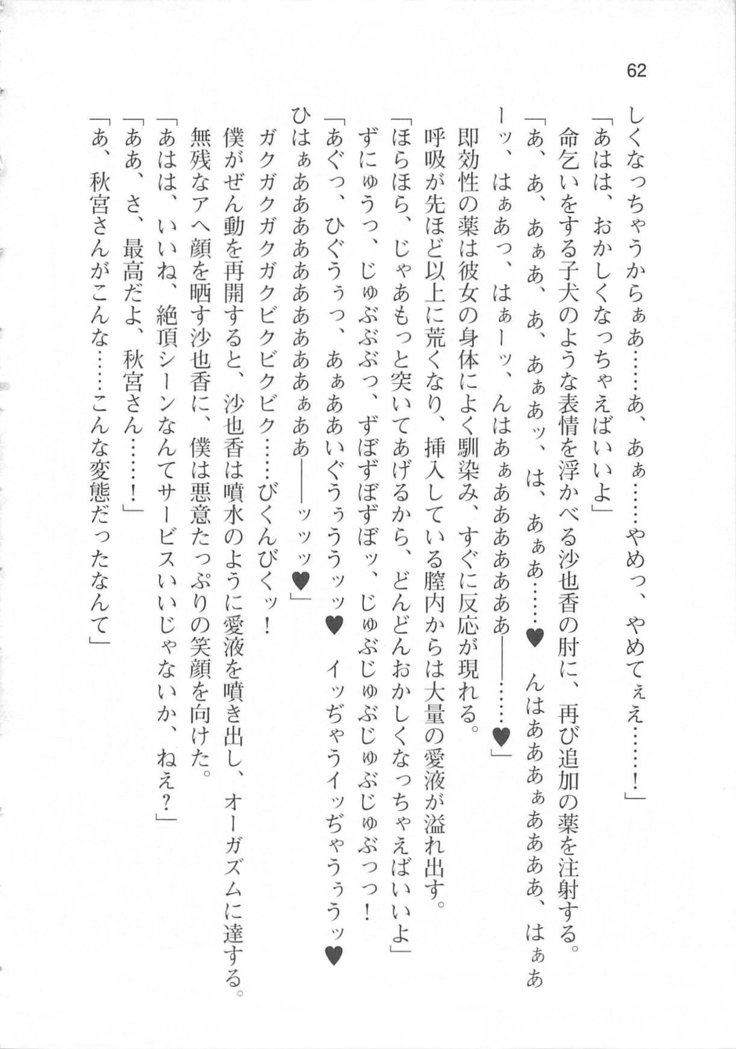 62
しくなっちゃうからぁあ……あ、あぁ……やめっ、やめてぇえ……！」
「あはは、おかしくなっちゃえばいいよ」
命乞いをする子犬のような表情を浮かべる沙也香の肘に、再び追加の薬を注射する。
「あ、あ、あぁあ、あ、あぁあッ、は、あぁあ……♥　んはあああぁああああ、はぁあ
ーッ、はぁあっ、はぁーッ、んはあぁああああああああ――……♥」
即効性の薬は彼女の身体によく馴染み、すぐに反応が現れる。
呼吸が先ほど以上に荒くなり、挿入している膣内からは大量の愛液が溢れ出す。
「ほらほら、じゃあもっと突いてあげるから、どんどんおかしくなっちゃえばいいよ」
ずにゅうっ、じゅぶぶぶっ、ずぼずぼずぼッ、じゅぶじゅぶじゅぶじゅぶっっ！
「あぐっ、ひぐうぅっ、あぁああいぐうぅううッッ♥　イッぢゃうイッぢゃうぅうッ♥
ひはぁああああああああああぁああ――ッッッ♥」
ガクガクガクガクビクビクビク……びくんびくッ！
僕がぜん動を再開すると、沙也香は噴水のように愛液を噴き出し、オーガズムに達する。
無残なアヘ顔を晒す沙也香に、僕は悪意たっぷりの笑顔を向けた。
「あはは、いいね、絶頂シーンなんてサービスいいじゃないか、ねえ？」
「ああ、さ、最高だよ、秋宮さん……！」
「あ、秋宮さんがこんな……こんな変態だったなんて」